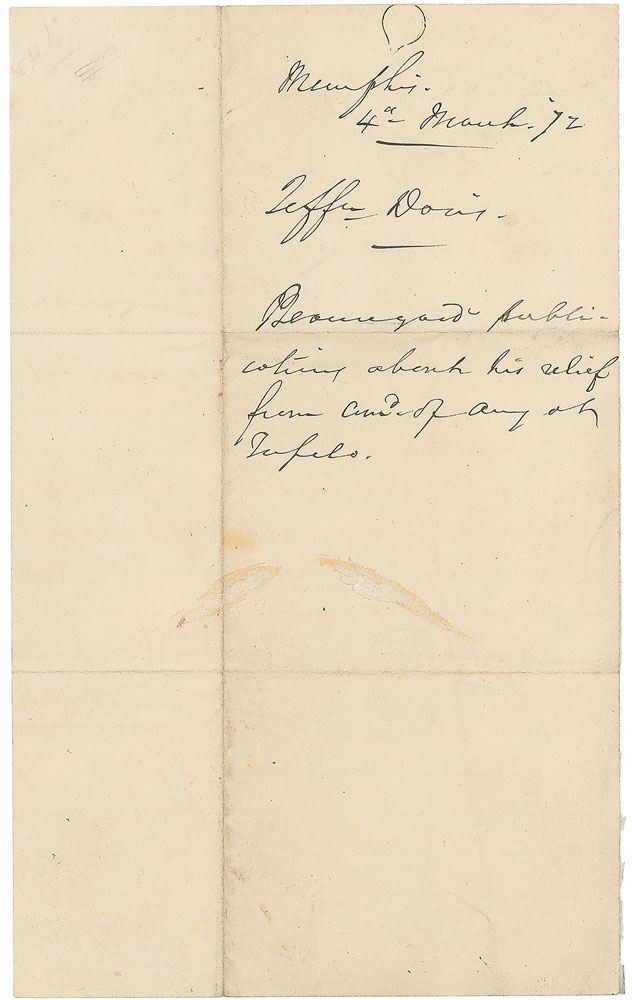 Memphis.
4th March. '72
Jeffn Davis.
Beauregard publi-
cating about his relief
from comd. of army at
Tupelo.